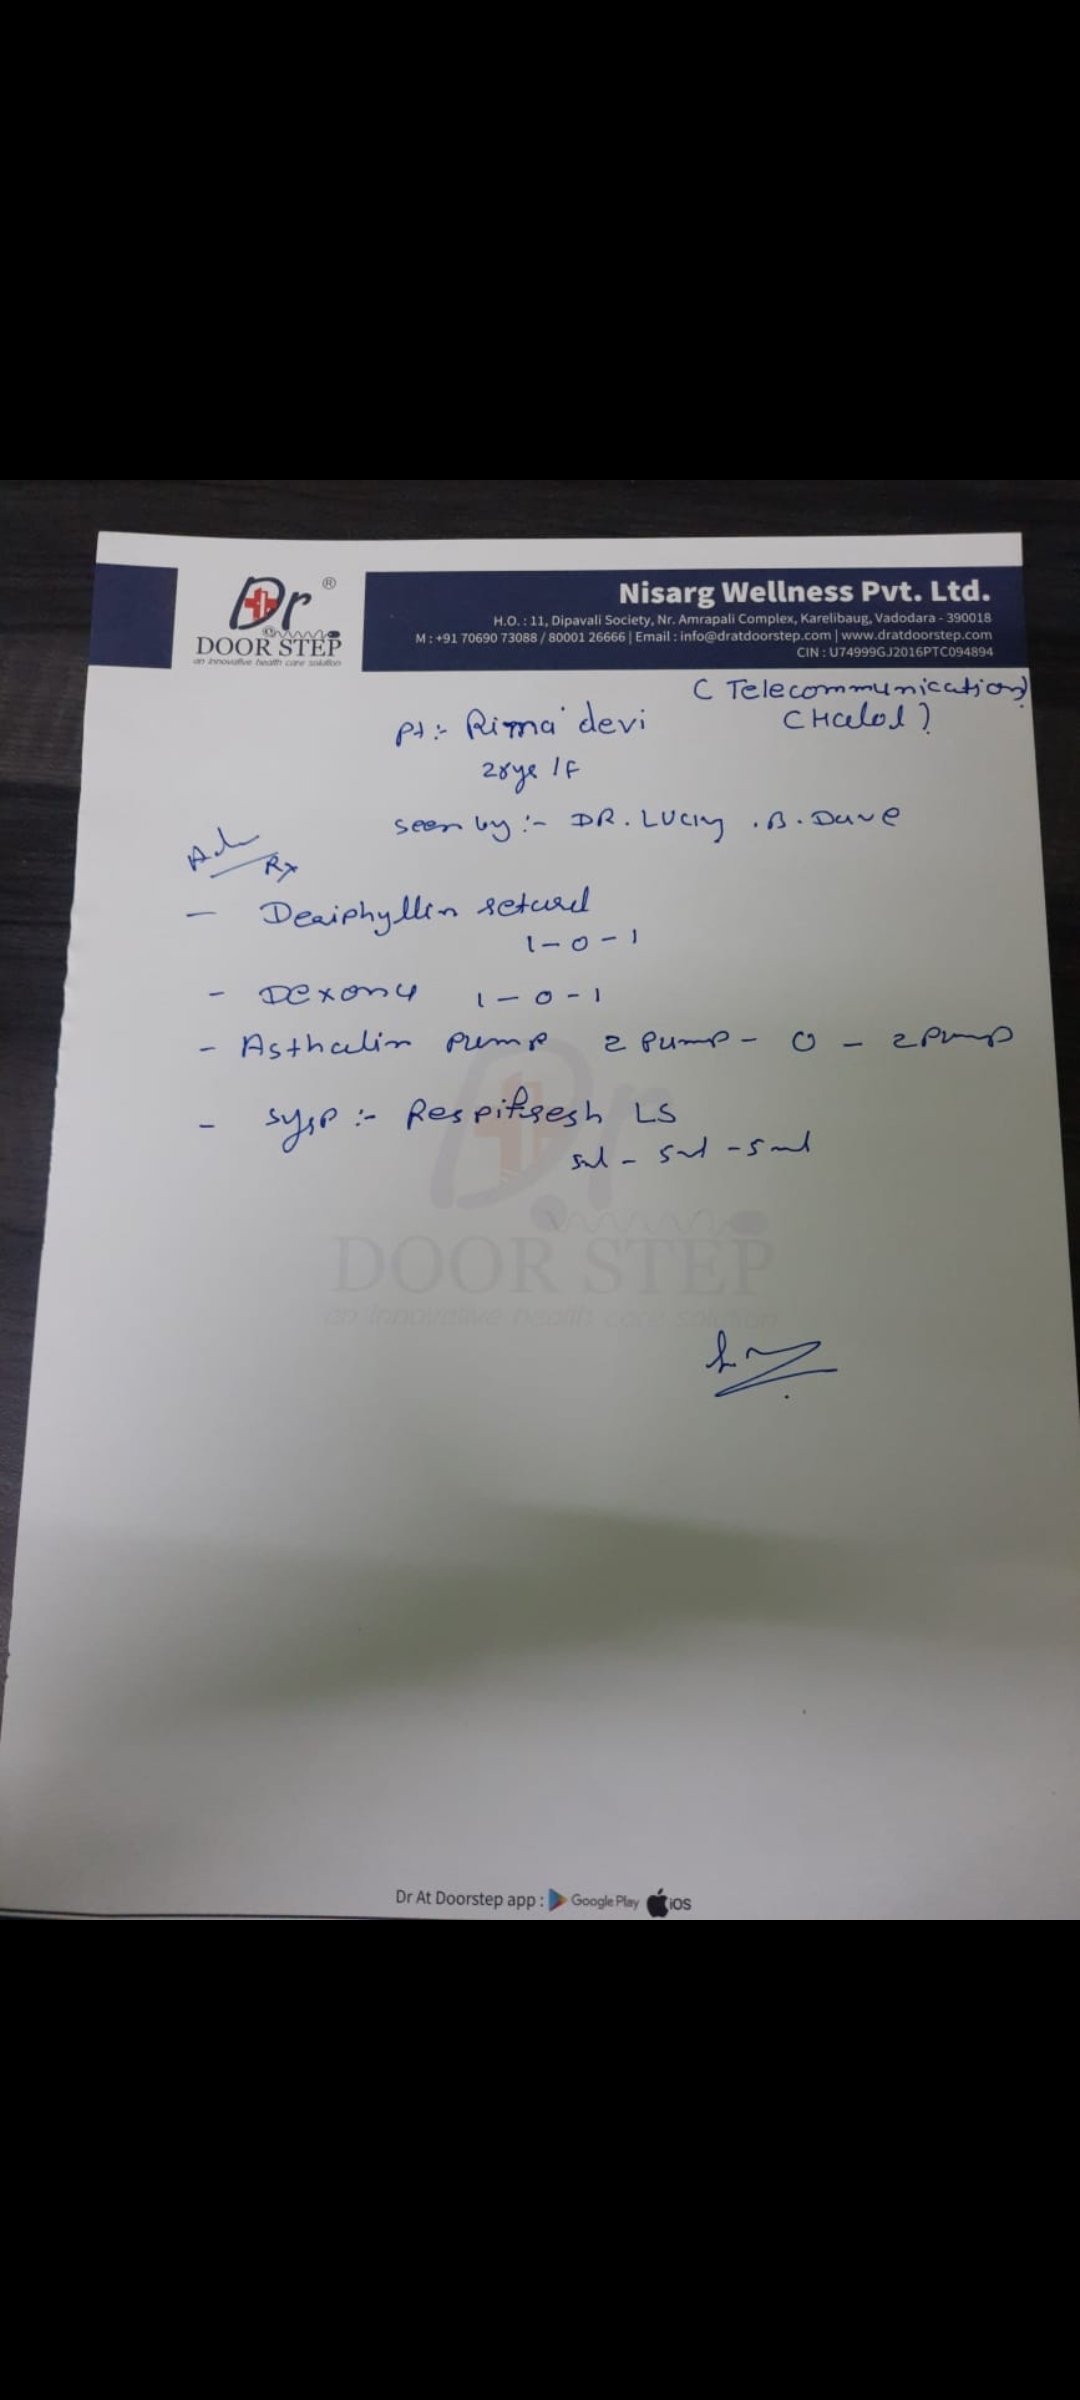 Dr ®
DOOR STEP
an innovative health care solution
Nisarg Wellness Pvt. Ltd.
H.O. : 11, Dipavali Society, Nr. Amrapali Complex, Karelibaug, Vadodara - 390018
M : +91 70690 73088 / 80001 26666 | Email : info@dratdoorstep.com | www.dratdoorstep.com
CIN : U74999GJ2016PTC094894
( Telecommunication)
Pt :- Rima devi (Halol)
28ys / F
seen by :- DR. Lucky . B. Dave
Adv
Rx
- Deriphyllin retard
1 - 0 - 1
- Dexona 1 - 0 - 1
- Asthalin pump 2 Pump - 0 - 2 pump
- syrp :- Respifresh LS
5ml - 5ml - 5ml
Dr
DOOR STEP
an innovative health care solution
Dr At Doorstep app : Google Play iOS